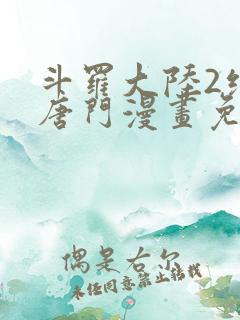 斗羅大陸2絕
唐門漫畫免
偶是右尔
未经同意禁止转载